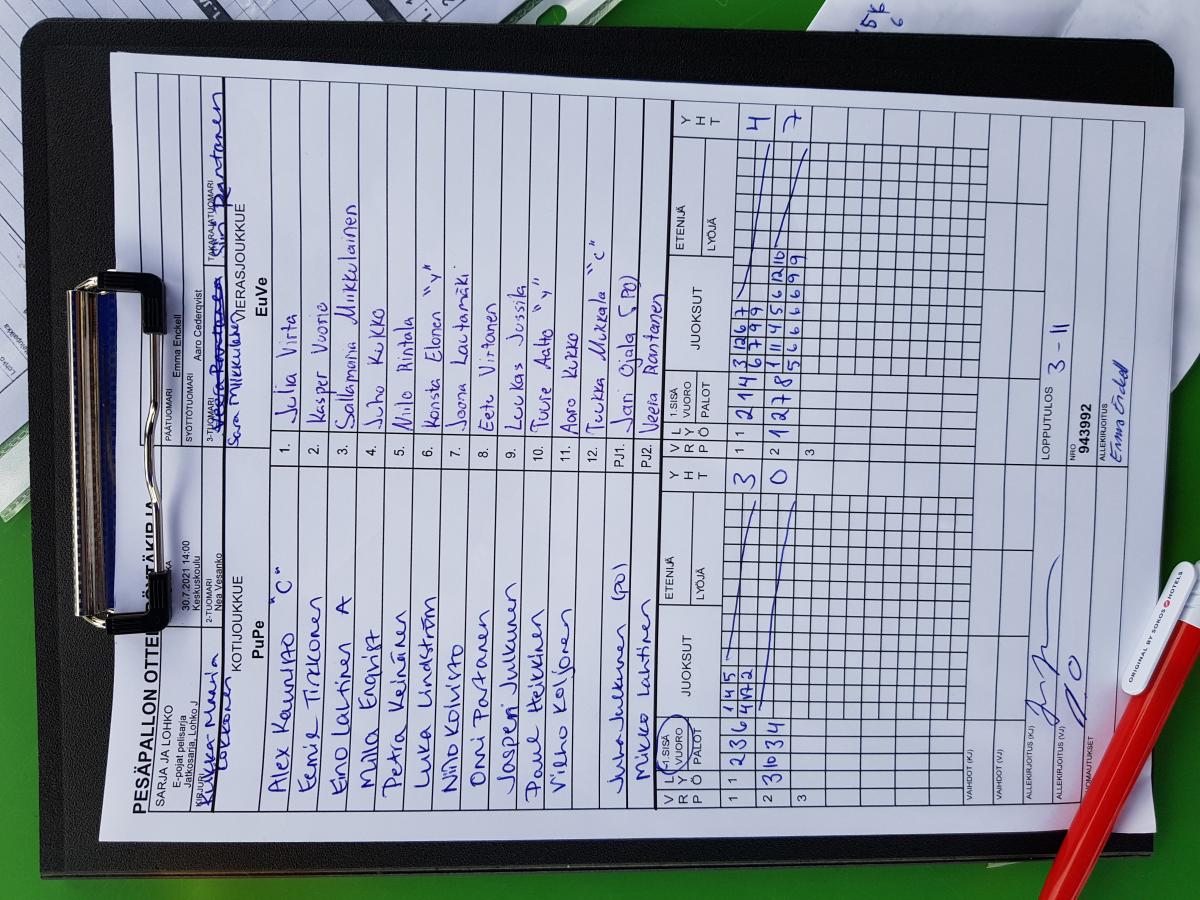 PESÄPALLON OTTE
SARJA JA LOHKO
E-pojat pelisarja
Jatkosarja, Lohko J
30.7.2021 14:00
Keskuskoulu
PÄÄTUOMARI
Emma Enckell
SYÖTTÖTUOMARI
Aaro Cederqvist
KIRJURI
Kukka-Maaria
2-TUOMARI
Nea Vesanko
3-TUOMARI
Sara Miikkulainen
TAKARAJATUOMARI
Siiri Rantanen
KOTIJOUKKUE
PuPe
VIERASJOUKKUE
EuVe
Alex Kaunisto "C"
1. Julia Virta
Eemie Tirkkonen
2. Kasper Vuorio
Eino Lahtinen A
3. Sallamaina Miikkulainen
Milla Enqvist
4. Juho Kukko
Petra Keinänen
5. Niilo Rintala
Luka Lindström
6. Konsta Elonen "Y"
Niilo Koivisto
7. Joona Lautamäki
Onni Partanen
8. Eetu Virtanen
Jasperi Julkunen
9. Luukas Jussila
Paul Heikkinen
10. Tuure Aalto "Y"
Vieno Koljonen
11. Aaro Kukko
12. Tuukka Mukkala "C"
Juha Julkunen (PO)
PJ1. Jari Ojala (PO)
Mikko Lahtinen
PJ2. Veera Rantanen
V R P L Y Ö 1.SISÄ VUORO PALOT JUOKSUT ETENIJÄ LYÖJÄ Y H T
V R P L Y Ö 1.SISÄ VUORO PALOT JUOKSUT ETENIJÄ LYÖJÄ Y H T
1 1 2 3 6 1 4 5 3
1 1 2 1 4 3 12 6 7 4
6 7 9 9
2 3 10 3 4 0
2 1 2 7 8 1 11 4 5 6 12 10 7
5 6 6 6 6 9 9
3
3
VAIHDOT (KJ)
VAIHDOT (VJ)
ALLEKIRJOITUS (KJ)
LOPPUTULOS 3 - 11
ALLEKIRJOITUS (VJ)
NRO
943992
HUOMAUTUKSET
ALLEKIRJOITUS
Emma Enckell
ORIGINAL BY SOKOS HOTELS